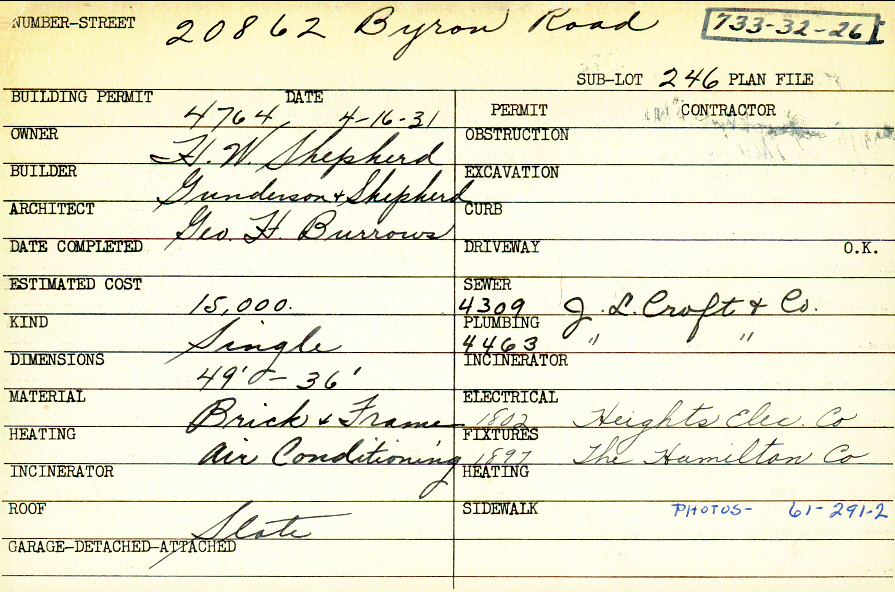 NUMBER-STREET 20862 Byron Road 733-32-26
SUB-LOT 246 PLAN FILE
BUILDING PERMIT 4764 DATE 4-16-31
OWNER H. W. Shepherd
BUILDER Gunderson & Shepherd
ARCHITECT Geo. H. Burrows
DATE COMPLETED
ESTIMATED COST 15,000.
KIND Single
DIMENSIONS 49'0 - 36'
MATERIAL Brick & Frame
HEATING Air Conditioning
INCINERATOR
ROOF Slate
GARAGE-DETACHED-ATTACHED
PERMIT CONTRACTOR
OBSTRUCTION
EXCAVATION
CURB
DRIVEWAY O.K.
SEWER
4309 J. L. Croft & Co.
PLUMBING
4463 " "
INCINERATOR
ELECTRICAL
1802 Heights Elec. Co
FIXTURES
1897 The Hamilton Co
HEATING
SIDEWALK PHOTOS- 61-291-2